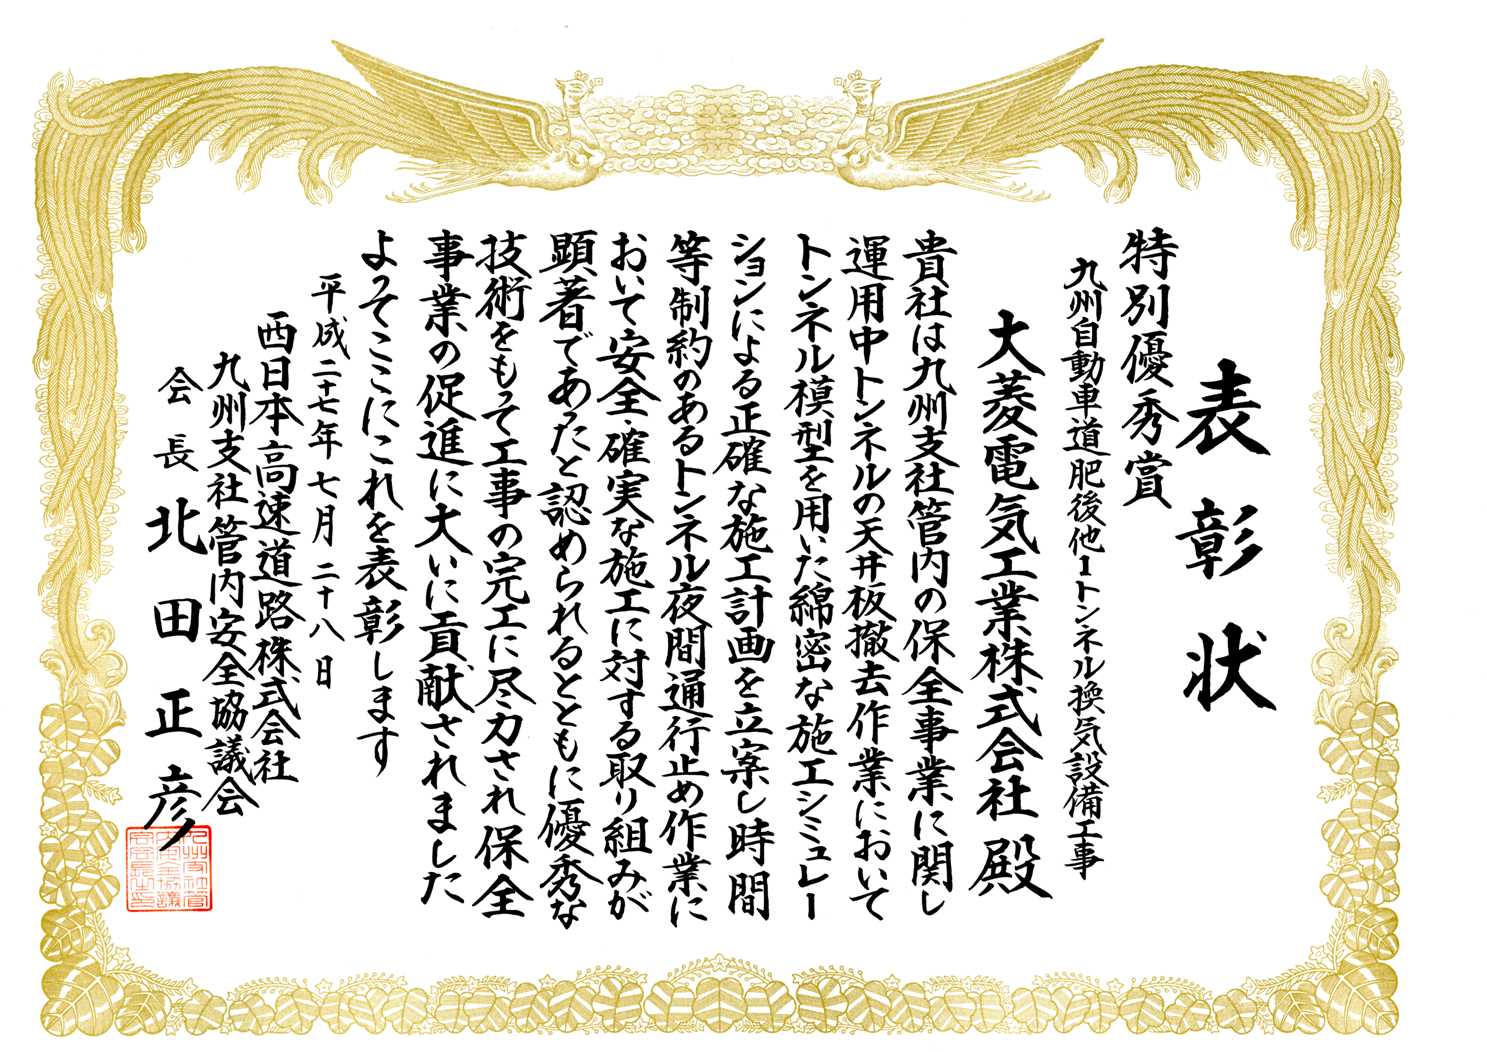 表彰状
特別優秀賞
九州自動車道肥後他1トンネル換気設備工事
大菱電気工業株式会社殿
貴社は九州支社管内の保全事業に関し
運用中トンネルの天井板撤去作業において
トンネル模型を用いた綿密な施工シミュレー
ションによる正確な施工計画を立案し時間
等制約のあるトンネル夜間通行止め作業に
おいて安全・確実な施工に対する取り組みが
顕著であったと認められるとともに優秀な
技術をもって工事の完工に尽力され保全
事業の促進に大いに貢献されました
よってここにこれを表彰します
平成二十七年七月二十八日
西日本高速道路株式会社
九州支社管内安全協議会
会長 北田正彦